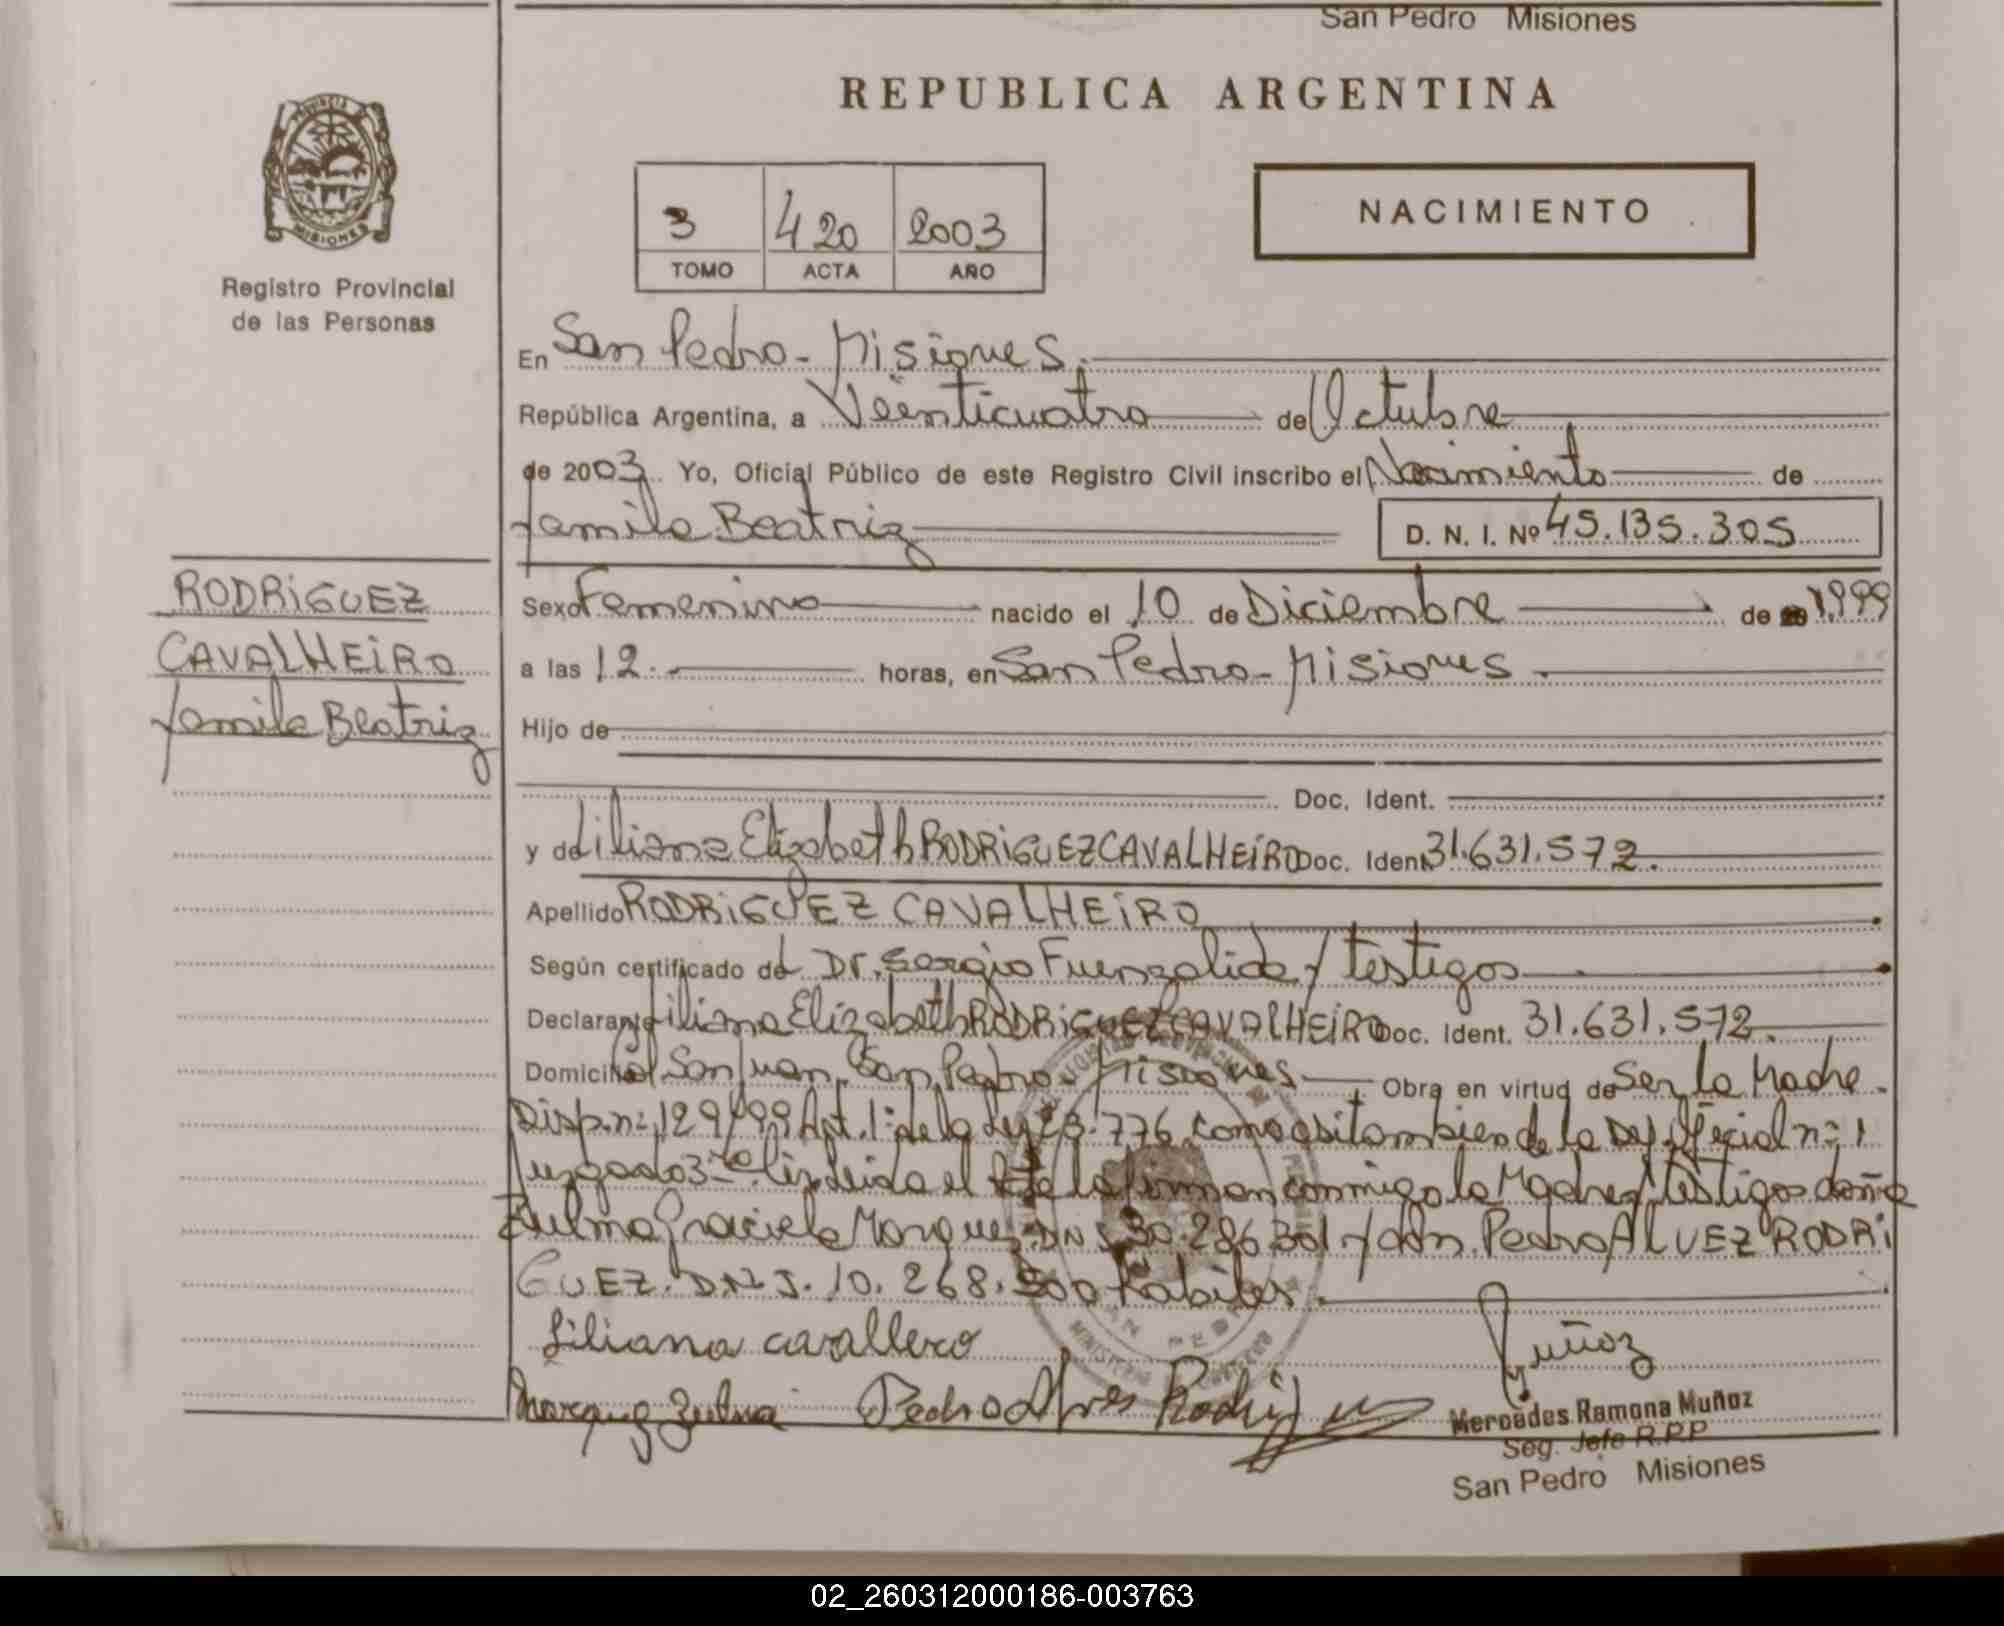 San Pedro Misiones
REPUBLICA ARGENTINA
PROVINCIA
MISIONES
Registro Provincial
de las Personas
3 420 2003
TOMO ACTA AÑO
NACIMIENTO
En San Pedro - Misiones.
República Argentina, a Veinticuatro de Octubre
de 2003 Yo, Oficial Público de este Registro Civil inscribo el Nacimiento de
Yamila Beatriz
D. N. I. Nº 45.135.305
RODRIGUEZ
CAVALHEIRO
Yamila Beatriz
Sexo Femenino nacido el 10 de Diciembre de 1.999
a las 12. horas, en San Pedro - Misiones
Hijo de
Doc. Ident.
y de Liliana Elizabeth RODRIGUEZ CAVALHEIRO Doc. Ident. 31.631.572.
Apellido RODRIGUEZ CAVALHEIRO
Según certificado del Dr. Sergio Fuenzalida y testigos
Declarante Liliana Elizabeth RODRIGUEZ CAVALHEIRO Doc. Ident. 31.631.572.
Domicilio San Juan, San Pedro - Misiones Obra en virtud de Ser la Madre.
Disp. nº 129/99 Art. 1º de la Ley 23.776 como asi tambien de la Def. Oficial nº 1
Juzgado 3 el la firman conmigo la Madre y testigos doña
Zulma Graciela Marquez DNI 30.286.301 y don Pedro ALVEZ RODRI
GUEZ. D.N.I. 10.268.500 habiles.
Liliana cavallero
Muñoz
Marquez Zulma Pedro Alves Rodrigues
Mercedes Ramona Muñoz
Seg. Jefe R.P.P
San Pedro Misiones
02_260312000186-003763